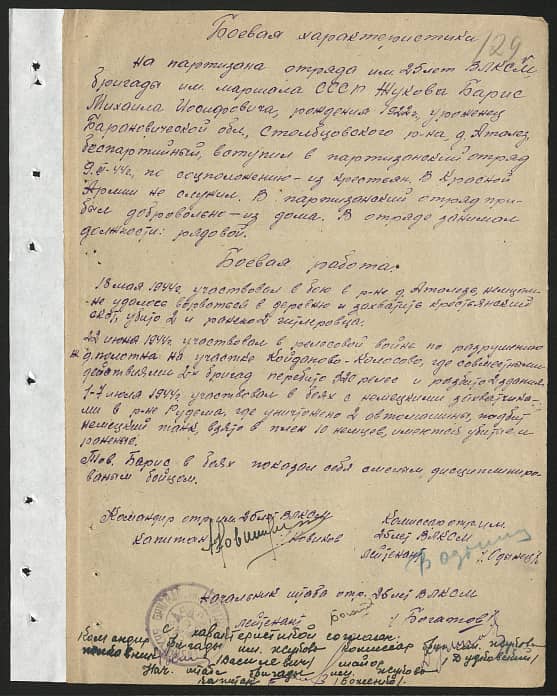 129
Боевая характеристика
На партизана отряда им. 25 лет ВЛКСМ
бригады им. маршала СССР Жукова Барис
Михаила Иосифовича, рождения 1922 г, уроженец
Барановической обл, Столбцовского р-на, д.
беспартийный, вступил в партизанский отряд
по соцположению – из крестьян. В Красной
Армии не служил. В партизанский отряд при-
был добровольно – из дома. В отряде занимал
должности: рядовой.
Боевая работа.
18 мая 1944г участвовал в бою в р-не д. немцам
не удалось ворваться в деревню и захватить крестьянский
скот, убито 2 и ранено 2 гитлеровца.
22 июня 1944г участвовал в релсовой войне по разрушению
ж.д. полотна на участке Койданово-Колосово, где совместными
действиями 2-х бригад перебито релс и
1-7 июля 1944г участвовал в боях с немецкими захватчика-
ми в р-не Рудема, где уничтожено 2 автомашины, подбит
немецкий танк, взято в плен 10 немцев, имеются убитые и
раненые.
Тов. Барис в боях показал себя смелым дисциплиниро-
ваным бойцом.
Командир отр. им. 25 лет ВЛКСМ
Капитан /Новиков
Комиссар отр. им.
25 лет ВЛКСМ
Лейтенант /Одынец/
Начальник штаба отр. 25 лет ВЛКСМ
Лейтенант /Богатов/
С характеристикой согласен:
Командир бригады им. Жукова
полковник /Василевич/
Комиссар бригады им. Жукова
майор /Дудковский/
Нач. штаба бригады им. Жукова
капитан